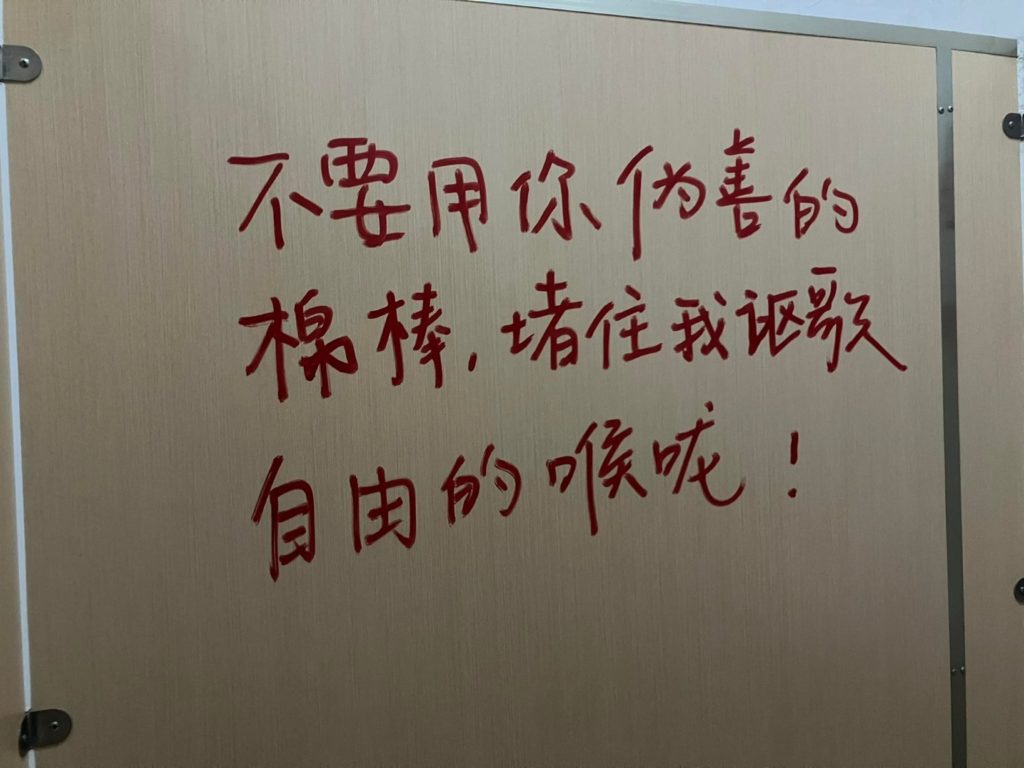 不要用你伪善的
棉棒,堵住我讴歌
自由的喉咙!